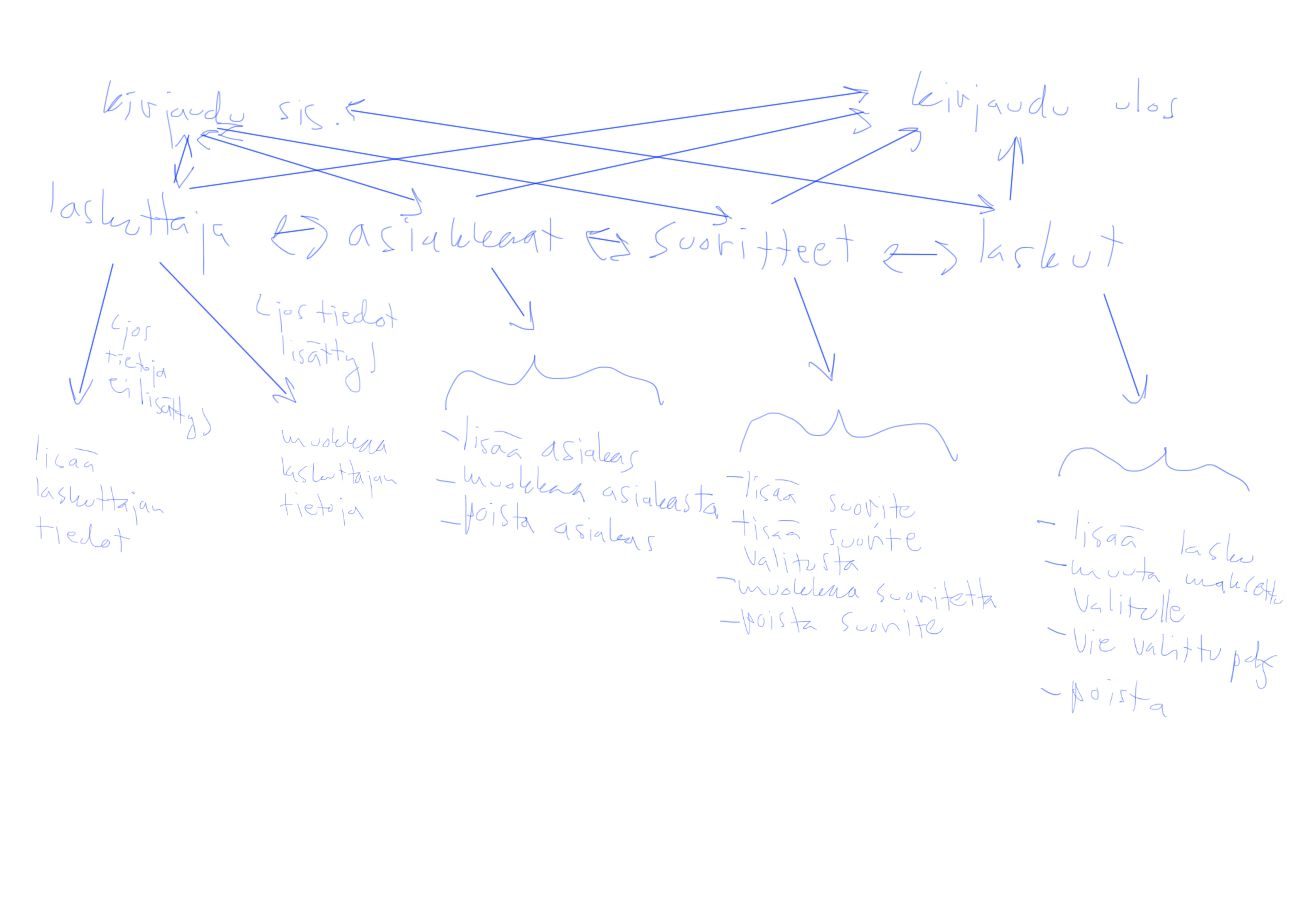 kirjaudu sis.
kirjaudu ulos
laskuttaja
asiakkaat
suoritteet
laskut
(jos
tietoja
ei lisätty)
(jos tiedot
lisätty)
lisää
laskuttajan
tiedot
muokkaa
laskuttajan
tietoja
-lisää asiakas
-muokkaa asiakasta
-poista asiakas
-lisää suorite
-lisää suorite
valitusta
-muokkaa suoritetta
-poista suorite
- lisää lasku
-muuta maksettu
valitulle
-vie valittu pdf
-poista